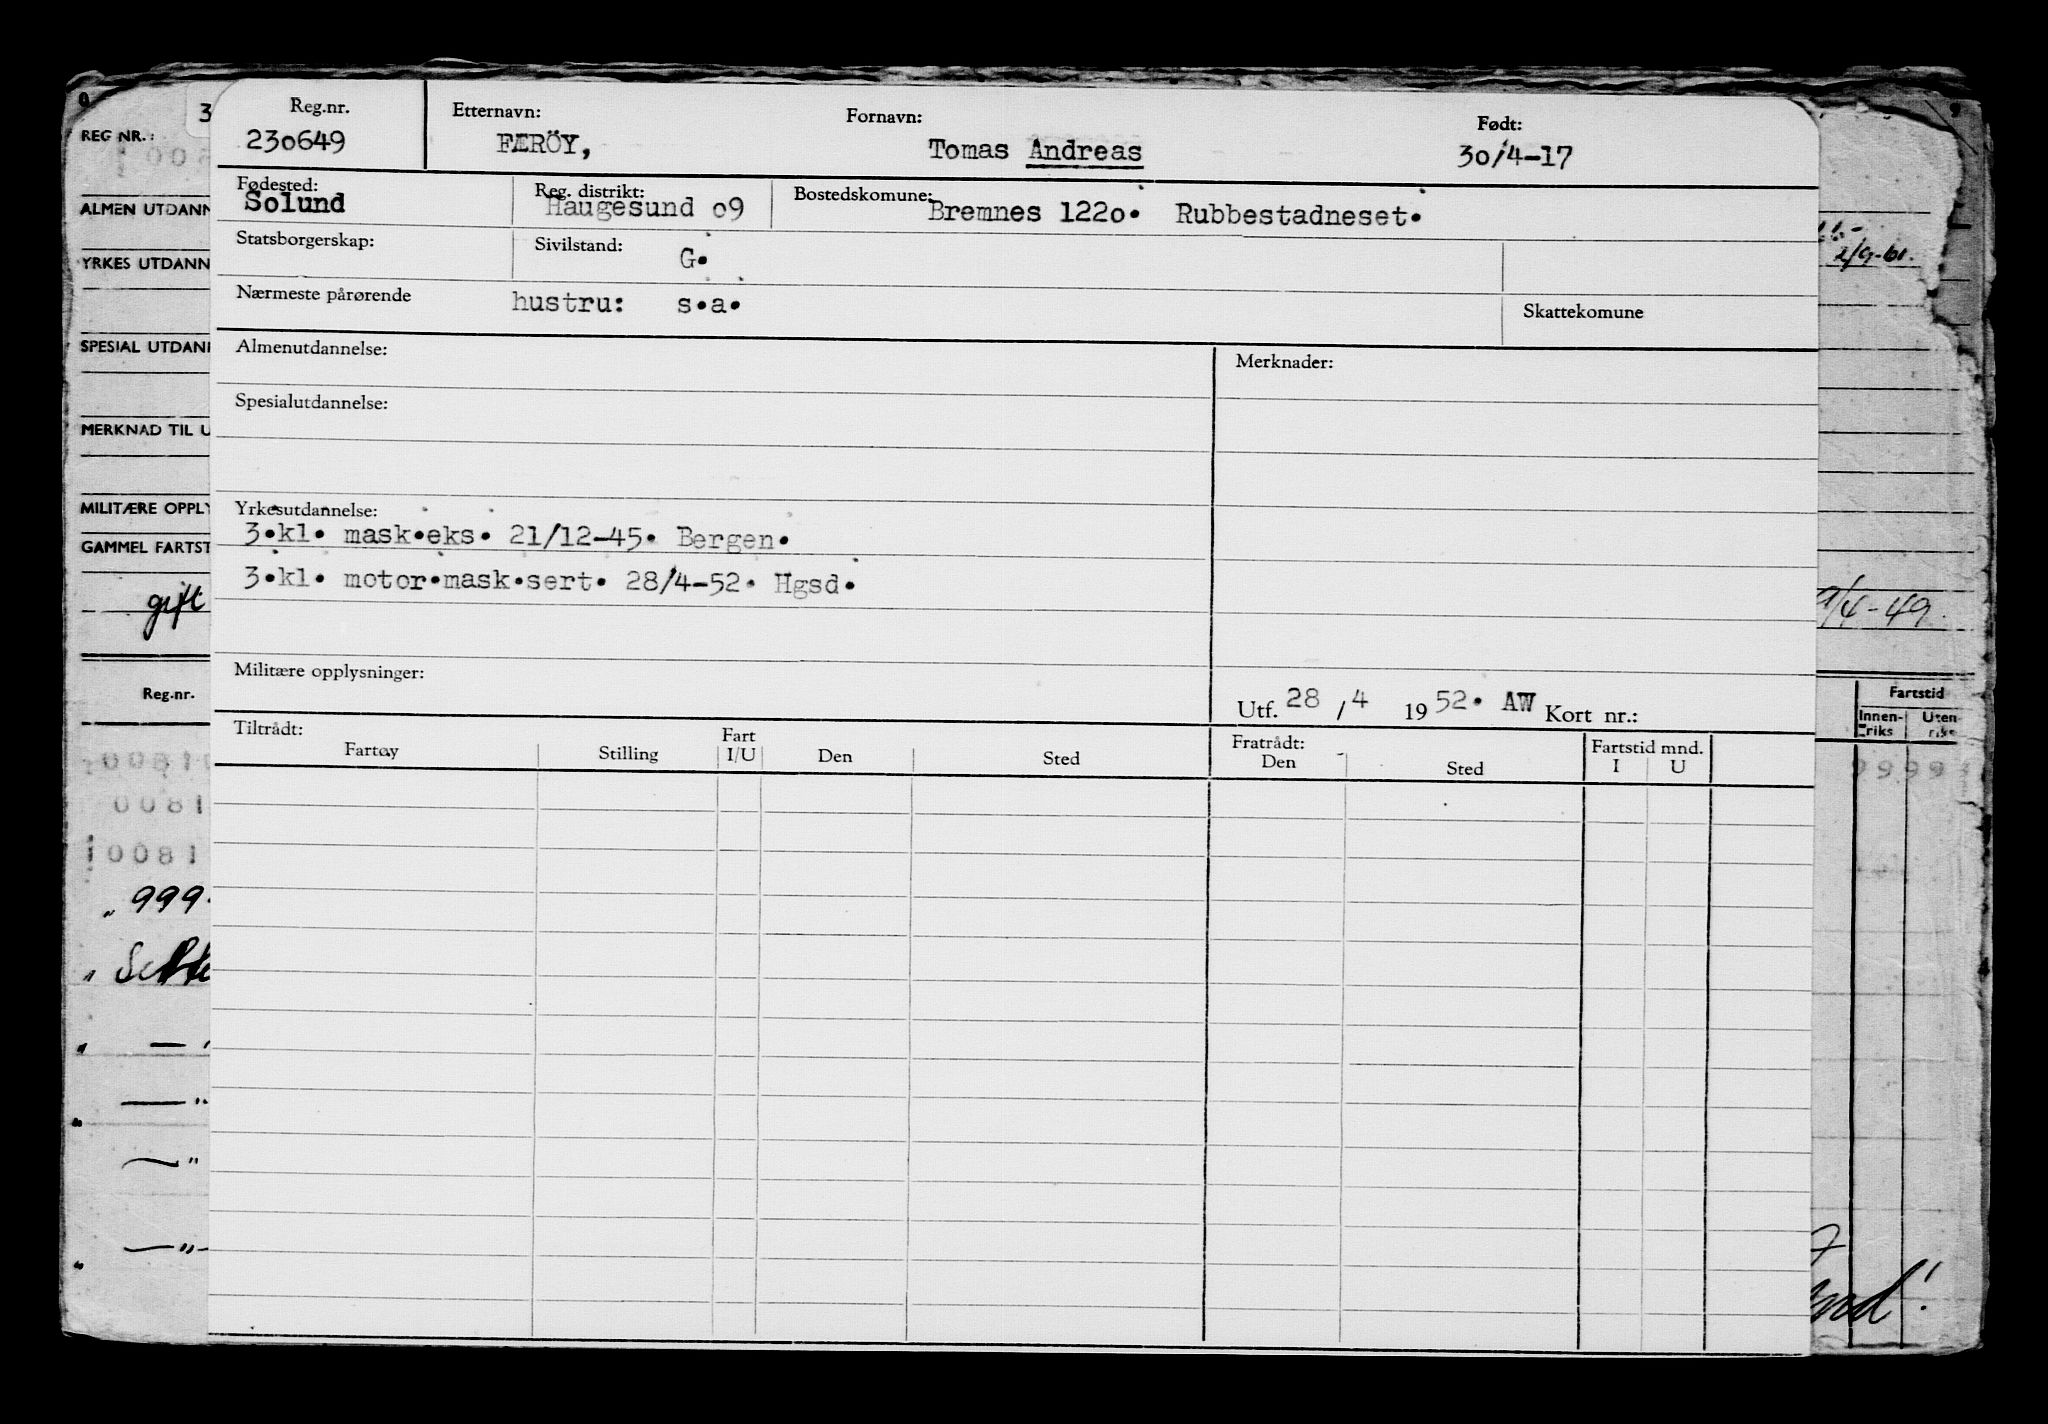 Reg.nr. Etternavn: Fornavn: Født:
230649 FÆRÖY, Tomas Andreas 30/4-17
Fødested: Reg. distrikt: Bostedskomune:
Solund Haugesund 09 Bremnes 1220. Rubbestadneset.
Statsborgerskap: Sivilstand: G.
Nærmeste pårørende hustru: s.a. Skattekomune
Almenutdannelse: Merknader:
Spesialutdannelse:
Yrkesutdannelse:
3.kl. mask.eks. 21/12-45. Bergen.
3.kl. motor.mask.sert. 28/4-52. Hgsd.
Militære opplysninger:
Utf. 28 / 4 19 52. AW Kort nr.:
Tiltrådt: Fratrådt:
Fartøy Stilling Fart I/U Den Sted Den Sted Fartstid mnd. I U
3
REG NR.:
ALMEN UTDANN
YRKES UTDANN
SPESIAL UTDAN
MERKNAD TIL U
MILITÆRE OPPLY
GAMMEL FARTST
gift
Reg.nr.
10081
0081
10081
" 999
2/9-61.
/4-49.
Fartstid
Innen-riks Uten-riks
9999